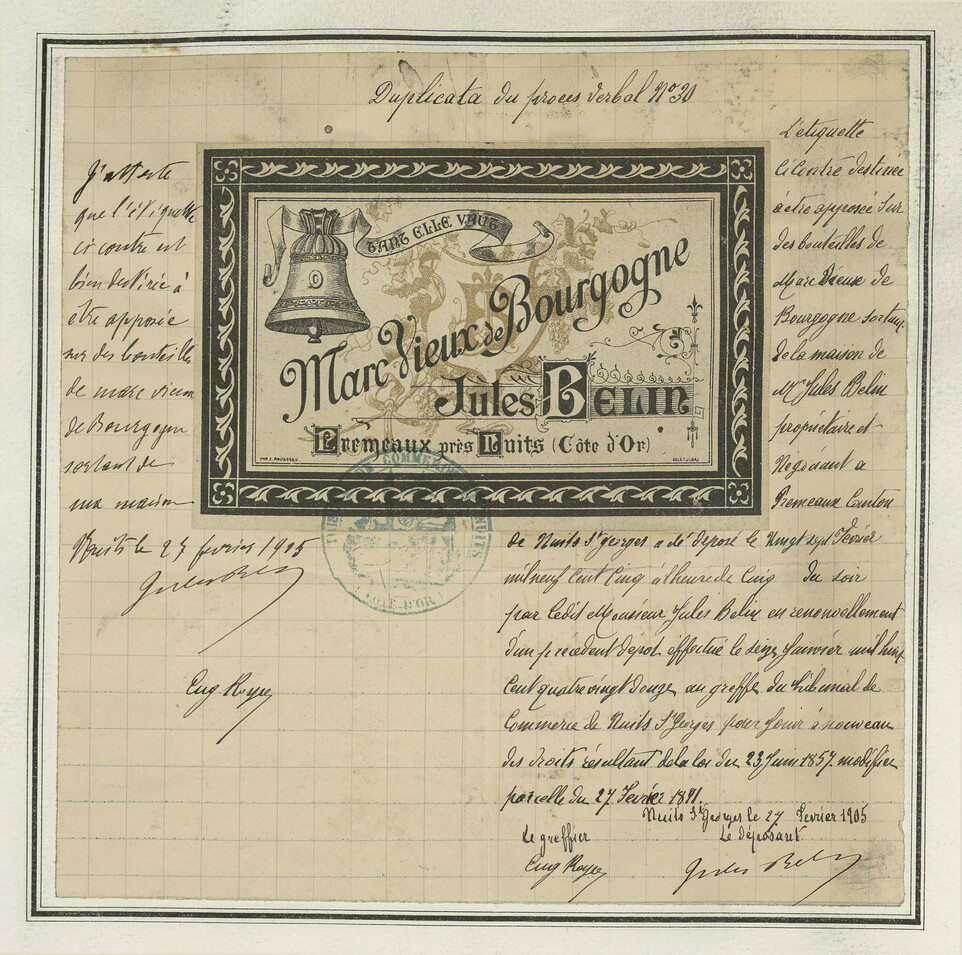 Duplicata du proces verbal Nº 30
J'atteste
que l'étiquette
ci contre est
bien destinée à
etre apposée
sur des bouteilles
de marc vieux
de Bourgogne
sortant de
ma maison
Nuits le 27 fevrier 1905
Jules Belin
Eug Royer
TANT ELLE VAUT
Marc Vieux de Bourgogne
Jules Belin
Prémeaux près Nuits (Côte d'Or)
L'etiquette
ci contre destinée
à etre apposée sur
des bouteilles de
Marc Vieux de
Bourgogne sortant
de la maison de
Mr Jules Belin
propriétaire et
Negociant a
Premeaux Canton
de Nuits St Georges a été deposé le Vingt sept Février
mil neuf cent cinq à l'heure de cinq du soir
par ledit Monsieur Jules Belin en renouvellement
d'un précédent dépot effectué le seize Janvier mil huit
cent quatre vingt douze au greffe du tribunal de
Commerce de Nuits St Georges pour jouir à nouveau
des droits résultant de la loi du 23 Juin 1857 modifiée
par celle du 27 Fevrier 1891.
Nuits St Georges le 27 Fevrier 1905
Le greffier Le déposant
Eug Royer Jules Belin